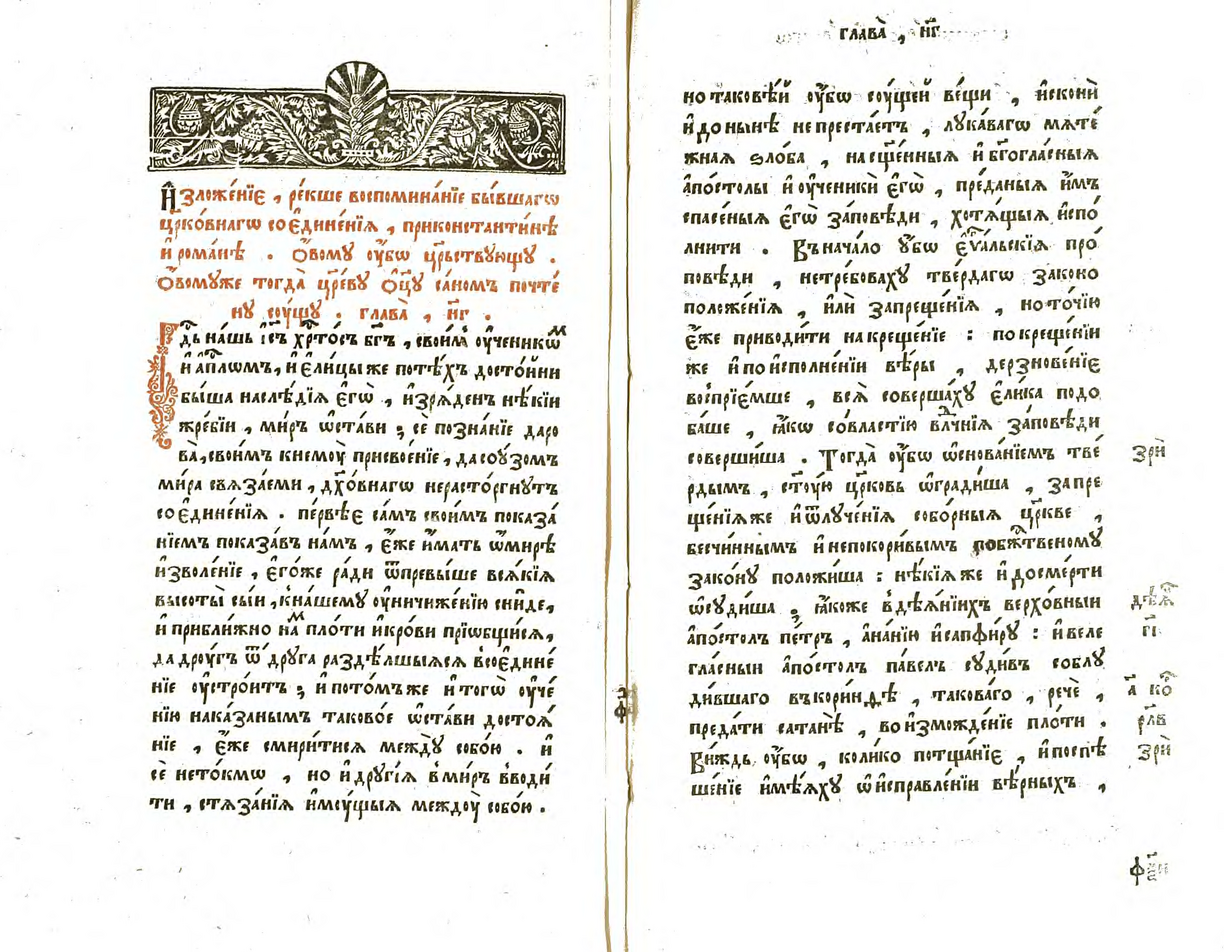 И҆зложе́нїе , ре́кше воспомина́нїе бы́вшагѡ
цр҃ко́внагѡ соедине́нїѧ , приконстанти́нѣ
и҆ рома́нѣ . ѻ҆вомꙋ ᲂу҆́бѡ цр҃ьствꙋющꙋ .
ѻ҆вомꙋже тогда̀ цр҃евꙋ ѻ҆ц҃ꙋ са́номъ почте́
нꙋ сᲂу́щꙋ . глава̀ , н҃г .
Гдⷭ҇ь на́шь і҆с҃ъ хрⷭ҇то́съ бг҃ъ , свои̑мъ ᲂу҆ченикѡ́ⷨ
и҆ а҆пⷭ҇лѡмъ , и҆ є҆ли́цы же потѣ́хъ досто́йни
бы́ша наслѣ́дїѧ є҆гѡ̀ , и҆зрѧ́денъ нѣ́кїи
жре́бїи , ми́ръ ѡ҆ста́ви ; се́ познанїе даро
ва̀ , свои́мъ кнемᲂу̀ присвое́нїе , дасᲂу́зомъ
ми́ра свѧза́еми , дх҃о́внагѡ нерасто́ргнꙋтъ
соедине́нїѧ . пе́рвѣе са́мъ свои́мъ показа́
нїемъ показа́въ на́мъ , є҆́же и҆́мать ѡ҆ми́рѣ
и҆зволе́нїе , є҆го́же ра́ди ѿпревы́ше всѧ́кїѧ
высоты̀ сы́и , кна́шемꙋ ᲂу҆ничиже́нїю сни́де ,
и҆ прибли́жно на́ⷨ пло́ти и҆кро́ви прїѡбщи́сѧ ,
да дрᲂу́гъ ѿ дрꙋ́га раздѣ́лшыѧсѧ всоедине́
нїе ᲂу҆стро́итъ ; и҆ пото́мъже и҆ тогѡ̀ ᲂу҆че́
нїю нака́занымъ таково́е ѡ҆ста́ви достоѧ́
нїе , є҆́же смири́тисѧ междꙋ̀ собо́ю . и҆
се́ нето́кмѡ , но и҆ дрꙋгі́ѧ вми́ръ вводи́
ти , стѧза́нїѧ и҆мᲂу́щыѧ междᲂу̀ собо́ю .
глава̀ , н҃г
но такова́й ᲂу҆́бѡ сᲂу́щей ве́щи , и҆скони̂
и҆ до ны́нѣ непреста́етъ , лꙋка́вагѡ мѧте́
жнаѧ ѕло́ба , насщ҃е́нныѧ и҆ бг҃огла́сныѧ
а҆по́столы и҆ ᲂу҆ченики̂ є҆гѡ̀ , пре́даныѧ и҆̀мъ
спасе́ныѧ є҆гѡ̀ за́повѣди , хотѧ́щыѧ и҆спо́
лнити . Въ нача́ло ᲂу҆́бѡ є҆ѵⷢ҇а́льскїѧ про́
повѣди , нетре́бовахꙋ тве́рдагѡ зако́но
положе́нїѧ , и҆лѝ запреще́нїѧ , но то́чїю
є҆́же приводи́ти накреще́нїе : покреще́нїи
же и҆ по и҆сполне́нїи вѣ́ры , дерзнове́нїе
воспрїе́мше , всѧ̀ соверша́хꙋ є҆ли́ка подо
ба́ше , ꙗ҆́кѡ совла́стїю влⷣчнїѧ за́повѣди
соверши́ша . Тогда̀ ᲂу҆́бѡ ѡ҆снова́нїемъ тве́
рдымъ , ст҃ᲂу́ю цр҃ковь ѡ҆гради́ша , запре
ще́нїѧже и҆ ѿлꙋче́нїѧ собо́рныѧ цр҃кве ,
бесчи́ннымъ и҆ непокори́вымъ побжⷭ҇твеномꙋ
зако́нꙋ положи́ша : нѣ́кїѧже и҆ досме́рти
ѡ҆сꙋди́ша , ꙗ҆́коже вдѣѧ́нїихъ верхо́вныи
а҆по́столъ пе́тръ , а҆на́нїю и҆сапфи́рꙋ : и҆ веле
гла́сныи а҆по́столъ па́велъ сꙋди́въ соблꙋ
ди́вшаго въкори́нѳѣ , такова́го , рече̂ ,
преда́ти сатанѣ̀ , во и҆зможде́нїе пло́ти .
Ви́ждь ᲂу҆́бѡ , коли́ко потща́нїе , и҆поспѣ
ше́нїе и҆мѣ́ѧхꙋ ѡ҆ и҆справле́нїи вѣ́рныхъ ,
зрѝ
дѣѧⷩ҇
г҃і
а҆ коⷬ҇
рл҃в
зрѝ